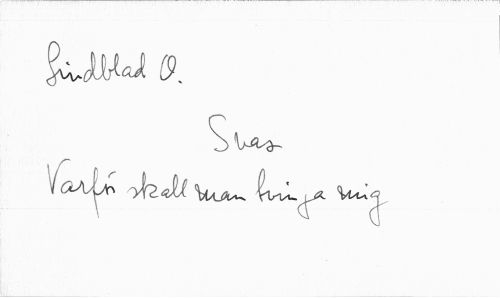 Lindblad O.
Svar
Varför skall man tvinga mig